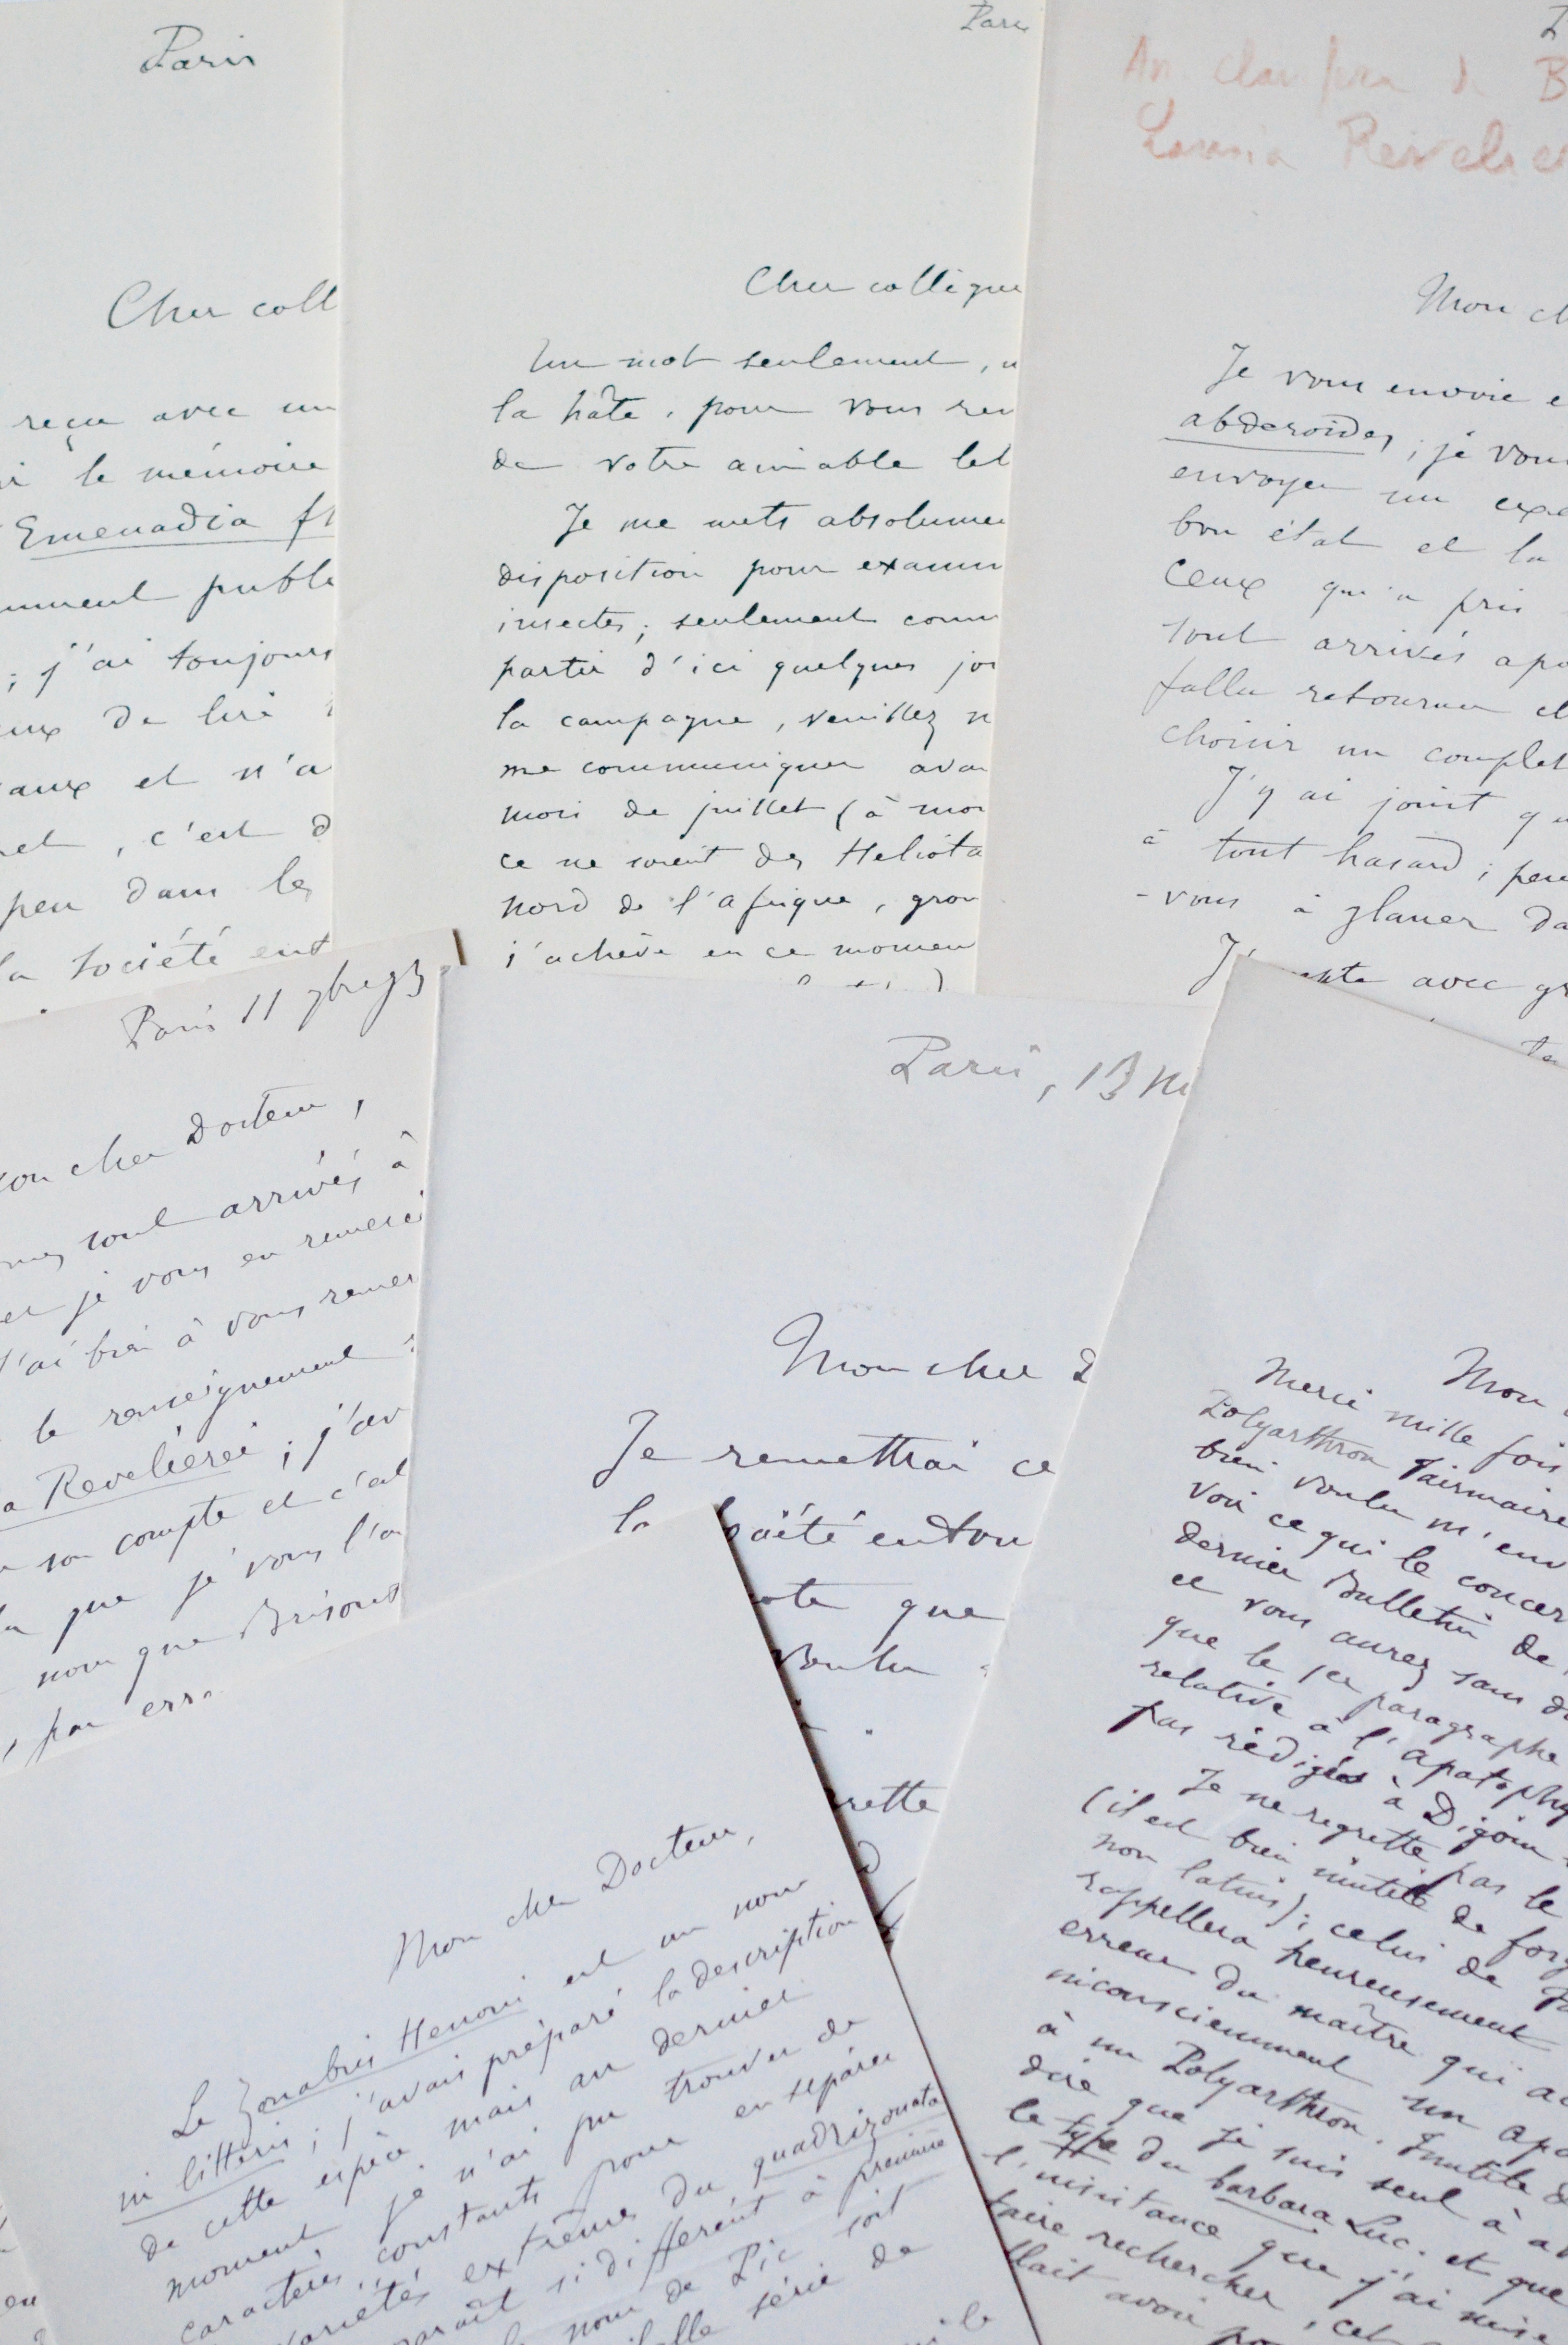 Paris
Cher coll
reçu avec un
le mémoire
Emenadia fl
mment publ
; j'ai toujours
eux de lire
aux et n'a
et, c'est d
peu dans les
la Société ent
Pari
Cher collègue
Un mot seulement, u
la hâte, pour vous rem
de votre aimable let
Je me mets absolumen
disposition pour examin
insectes; seulement comm
partir d'ici quelques jou
la campagne, veuillez n
me communiquer avan
mois de juillet (à moi
ce ne soient des Heliota
nord de l'Afrique, grou
j'achève en ce momen
de B
Revelie
Mon ch
Je vous envoie e
abderoïdes; je vous
envoyer un exe
bon état et la
ceux qu'a pris
sont arrivés apo
fallu retourner et
choisir un complet
J'y ai joint qu
à tout hasard; peu
-vous à glaner da
avec gr
Paris 11 9bre 93
on cher Docteur,
sont arrivés à
et je vous en remerci
J'ai bien à vous remer
le renseignement
a Revelièrei; j'av
son compte et c'ét
que je vous l'a
nom que Brisout
, par erre
Paris, 13 M
Mon cher D
Je remettrai ce
la Société entom
ote que
voulu
rette
Mon cher Docteur,
Le Zonabris Henoni est un nom
in litteris; j'avais préparé la description
de cette espèce mais au dernier
moment je n'ai pu trouver de
caractères constants pour en séparer
variétés extrêmes du quadrizonata
paraît si différent à première
nom de Pic soit
série de
Mon
Merci mille fois
Polyarthron Fairmairei
bien voulu m'env
voir ce qui le concer
dernier Bulletin de
et vous aurez sans do
que le 1er paragraphe
relative à l'Apatophy
pas rédigés à Digoin
Je ne regrette pas le
(il est bien inutile de forg
non latins); celui de
rappellera heureusement
erreur du maître qui a
inconsciemment un Apa
à un Polyarthron. Inutile d
dire que je suis seul à a
le type du barbara Luc. et que
l'insistance que j'ai mise
faire rechercher, cel
llait avoir po